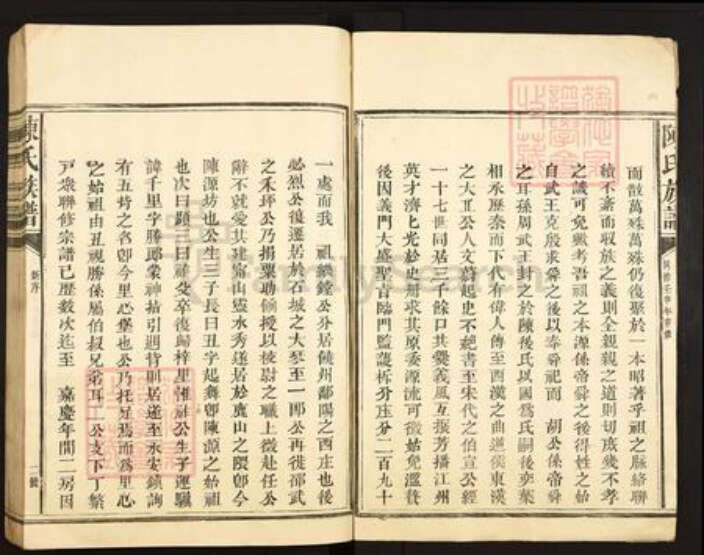 陳氏族譜
而散萬殊萬殊仍復聚於一本昭著乎祖之脉絡聯
續不紊而収族之義則全親親之道則切庶幾不孝
之譏可免歟考吾祖之本源係帝舜之後得姓之始
自武王克殷求舜之後以奉舜祀而 胡公係帝舜
之耳孫周武王封之於陳後氏以國為氏嗣後奕葉
相承歷泰而下代有偉人傳至西漢之曲逆漢東漢
之大丘公人文蔚起史不絶書至宋代之伯宣公經
一十七世同居三千餘口共爨義風亙振芳播江州
英才濟匕光於史冊求其原委源流可徵始免濫觴
後因義門大盛聖旨臨門監護拆分庄分二百九十
一處而我 祖繼鏜公分居饒州鄱陽之西庄也後
必烈公復遷居於石城之大琴至一郎公再徙邵武
之禾坪公乃捐粟助餉授以校尉之職上徵赴任公
辭不就愛其建甯山靈水秀遂居於鳶山之隈卽今
陳源坊也公生三子長曰丑字起舞卽陳源之始祖
也次曰顕三曰祥 卒後復歸梓里惟祉公生子運驥
諱千里字勝郎蒙神 引迴背則居遂至永安鎮詢
有五坊之名卽今里心堡也公乃托足焉而為里心
之始祖由丑視勝係屬伯叔兄弟耳二公支下丁繁
戸衆聯修宗譜已歴數次迄至 嘉慶年間二房因
陳氏族譜
新序
二號